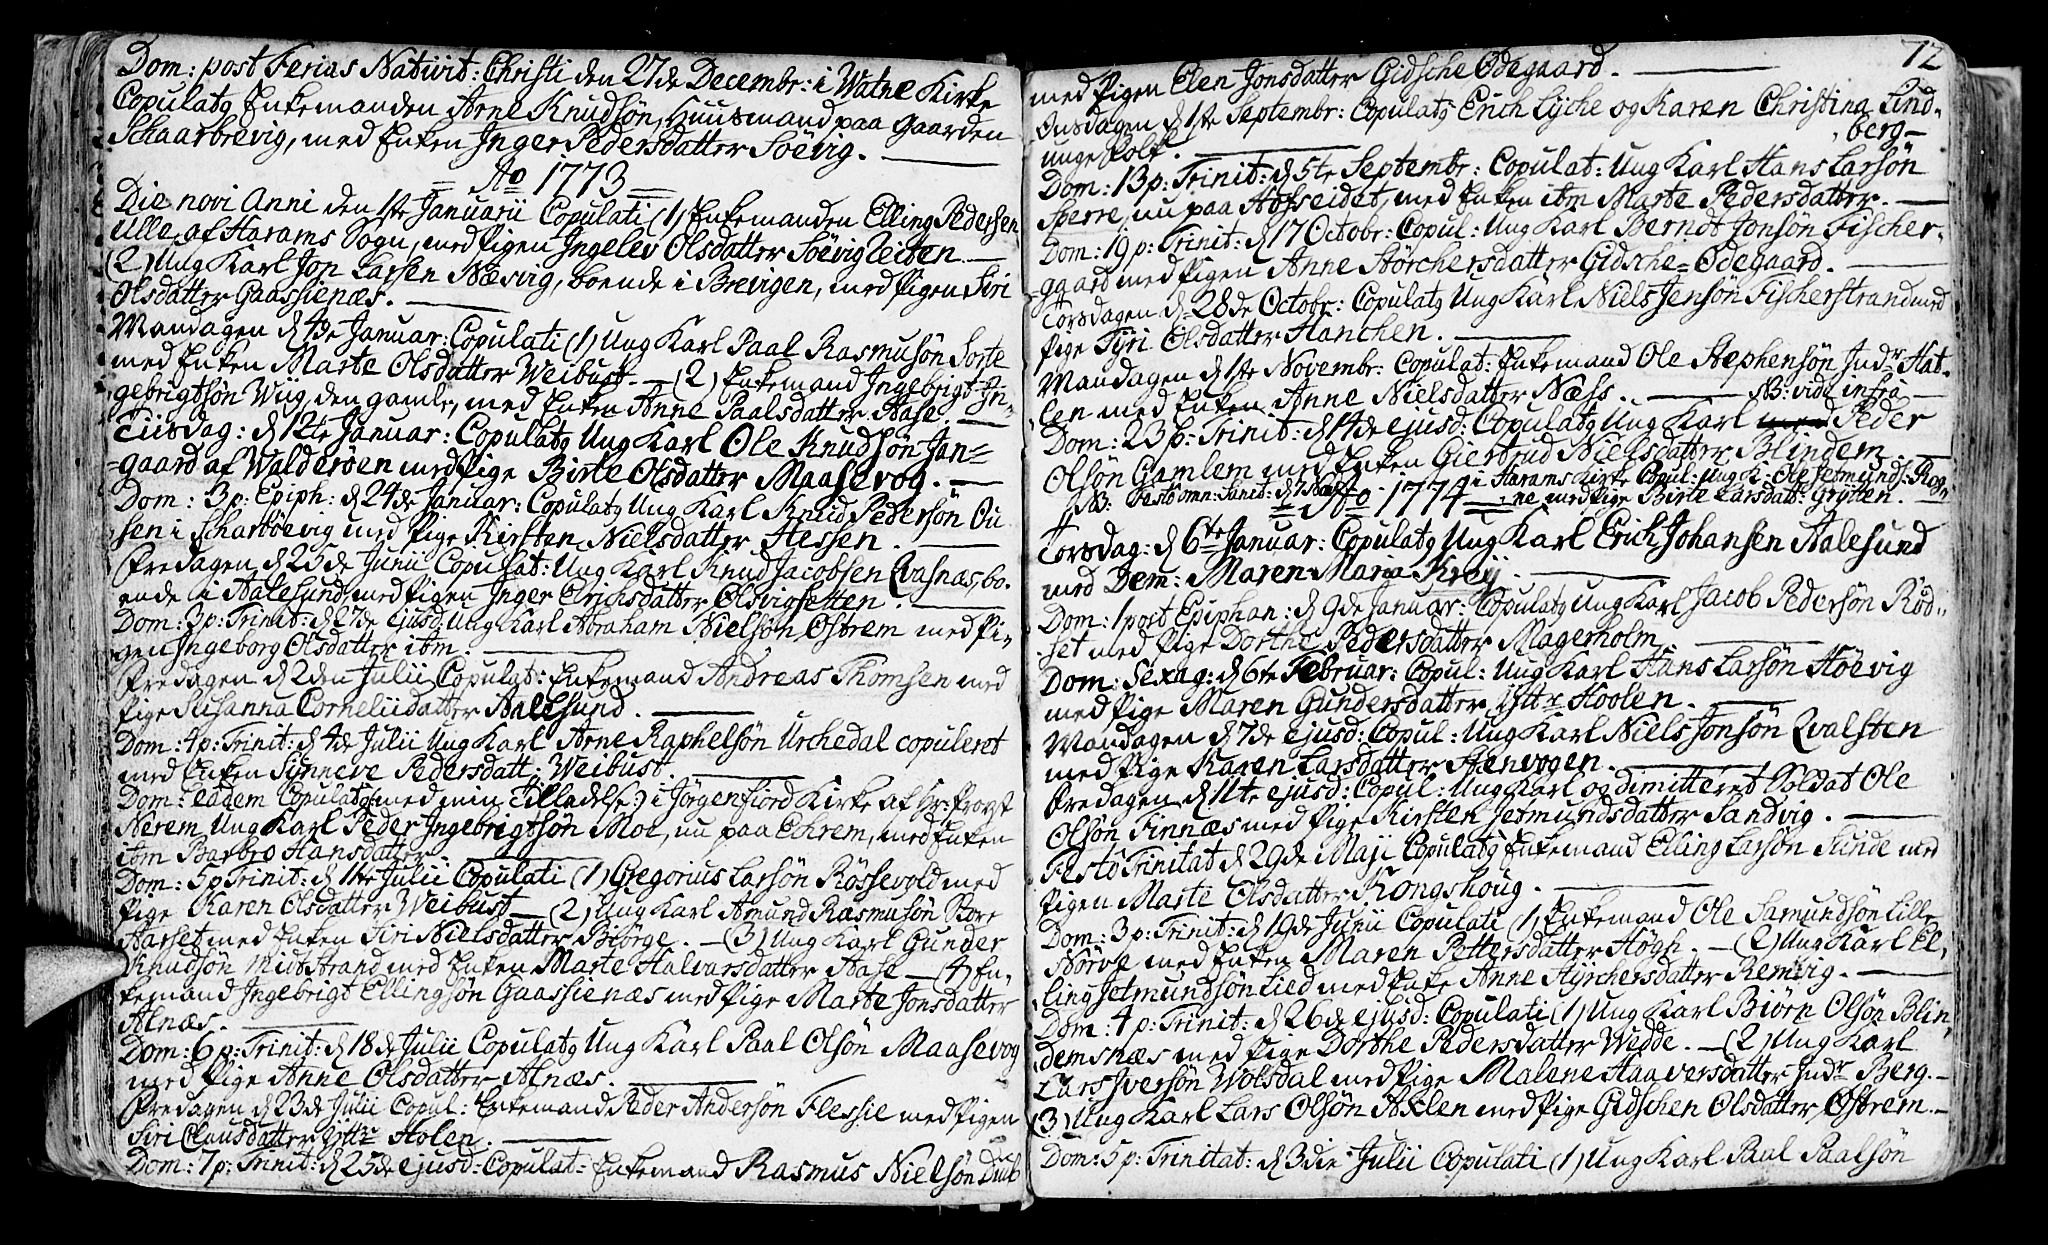 Dom: post Ferias Nativit: Christi den 27de Decembr: i Watne Kirke
Copulatg Enkemanden Arne Knudsön, Huusmand paa Gaarden
Schaarbrevig, med Enken Inger Pedersdatter Söevig.
Ao 1773
Die novi Anni den 1ste Januarii Copulati (1) Enkemanden Elling Pedersen
Ulle af Harams Sogn, med Pigen Ingelev Olsdatter Söevigzeiten.
(2) Ung Karl Jon Larsen Næsvig, boende i Brevigen, med Pigen Siri
Olsdatter Gaassienæs.
Mandagen d 4de Januar: Copulati (1) Ung Karl Paal Rasmusön Sorte
med Enken Marte Olsdatter Weibust. (2) Enkemand Ingebrigt In-
gebrigtsön Wiig, den gamle, med Enken Anne Paalsdatter Aase.
Tiisdag: d 12te Januar: Copulatg Ung Karl Ole Knudsön Jan-
gaard af Walderöen med Pige Birte Olsdatter Maasevog.
Dom: 3 p: Epiph: d 24de Januar: Copulatg Ung Karl Knud Pedersön Ou
sen i Scharböevig med Pige Kirsten Nielsdatter Hessen.
Fredagen d 25de Junii Copulat: Ung Karl Knud Jacobsen Qvasnæs, bo-
ende i Aalesund, med Pigen Inger Erichsdatter Olsvigsetten.
Dom: 3 p: Trinit: d 27de ejusd: Ung Karl Abraham Nielsön Östrem med Pi-
gen Ingeborg Olsdatter ibm.
Fredagen d 2den Julii Copulat: Enkemand Andreas Thomsen med
Pige Susanna Corneliidatter Aalesund.
Dom: 4 p: Trinit: d 4de Julii Ung Karl Arne Raphelsön Urchedal copuleret
med Enken Synneve Pedersdatt: Weibust.
Dom: eadem Copulatg (med min Tilladelse:) i Jörgenfiord Kirke af Hr: Provst
Nerem Ung Karl Peder Ingebrigtsön Moe, nu paa Ehrem, med Enken
ibm Barbro Hansdatter.
Dom: 5 p Trinit: d 11te Julii Copulati (1) Gregorius Larsön Rössevold med
Pige Karen Olsdatter Weibust. (2) Ung Karl Amund Rasmusön Store
Aarset med Enken Siri Nielsdatter Biörge. (3) Ung Karl Gunder
Knudsön Midstrand med Enken Marte Halvarsdatter Aase (4) En-
kemand Ingebrigt Ellingsön Gaassienæs med Pige Marte Jonsdatter
Alnæs.
Dom: 6 p: Trinit: d 18de Julii Copulatg Ung Karl Paal Olsön Maasevog
med Pige Anne Olsdatter Alnæs.
Fredagen d 23de Julii Copul: Enkemand Peder Andersön Flessie med Pigen
Siri Clausdatter Yttr Holen.
Dom: 7 p: Trinit: d 25de ejusd: Copulat: Enkemand Rasmus Nielsön Dub
72
med Pigen Elen Jonsdatter Gidsche Ødegaard.
Onsdagen d 1ste Septembr: Copulatg Erich Lyche og Karen Christina Lind-
berg
unge Folk.
Dom: 13 p: Trinit: d 5te Septembr: Copulat: Ung Karl Hans Larsön
Sperre, nu paa Hofseidet, med Enken ibm Marte Pedersdatter.
Dom: 19 p: Trinit: d 17 Octobr: Copul: Ung Karl Berndt Jonsön Fischer-
gaard med Pigen Anne Störchersdatter Gidsche-Ødegaard.
Torsdagen d 28de Octobr: Copulatg Ung Karl Niels Jensön Fischerstrand med
Pige Tyri Olsdatter Hanchen.
Mandagen d 1ste Novembr: Copulat: Enkemand Ole Stephensön Indr Hat-
len med Enken Anne Nielsdatter Næss. NB: vide infra
Dom: 23 p: Trinit: d 14de ejusd: Copulatg Ung Karl Peder
Olsön Gamlem med Enken Giertrud Nielsdatter Blindem.
NB: Festo Omn: Sanct: d 7 Nov: i Harams Kirke Copul: Ung K. Ole Jetmunds: Rog-
Ao 1774 ne med Pige Birte Larsdatt: Grytten.
Torsdag: d 6te Januar: Copulatg Ung Karl Erich Johansen Aalesund
med Dem: Maren Maria Krey.
Dom: 1 post Epiphan: d 9de Januar: Copulatg Ung Karl Jacob Pedersön Röd-
set med Pige Dorthe Pedersdatter Magerholm
Dom: Sexag: d 6te Februar: Copul: Ung Karl Hans Larsön Höevig
med Pige Maren Gundersdatter Yttr Hoolen.
Mandagen d 7de ejusd: Copul: Ung Karl Niels Jonsön Qvalsten
med Pige Karen Larsdatter Stenvogen.
Fredagen d 11te ejusd: Copul: Ung Karl og dimitteret Soldat Ole
Olsön Finnæs med Pige Kirsten Jetmundsdatter Sandvig.
Festo Trinitat d 29de Maji Copulatg Enkemand Elling Larsön Sunde med
Pigen Marte Olsdatter Kongshoug.
Dom: 3 p: Trinit: d 19de Junii Copulati (1) Enkemand Ole Samundsön Lille
Nörve med Enken Maren Pettersdatter Högh. (2) Ung Karl El-
ling Jetmundsön Lied med Enke Anne Hyrchersdatter Remvig.
Dom: 4 p: Trinit: d 26de ejusd: Copulati (1) Ung Karl Biörn Olsön Blin-
demsnæs med Pige Dorthe Pedersdatter Wedde. (2) Ung Karl
Lars Iversön Wolsdal med Pige Malene Haaversdatter Indr Berg.
(3) Ung Karl Lars Olsön Axlen med Pige Gidschen Olsdatter Østrem.
Dom: 5 p: Trinitat: d 3die Julii Copulati (1) Ung Karl Paul Paalsön